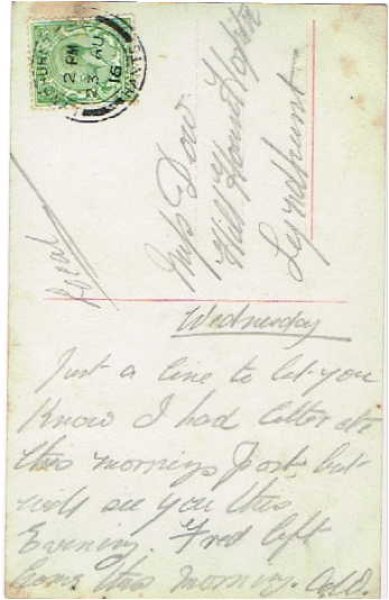 LYNDHURST
2 PM
23 AU
16
HANTS
Local
Miss Dow
Hill House Hospital
Lyndhurst
Wednesday
Just a line to let you
Know I had letter
this mornings post, but
will see you this
Evening. Fred left
home this morning.